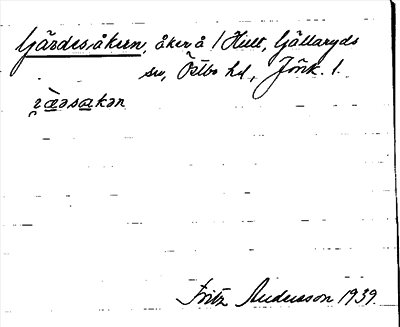 Gärdesåkern, åker å 1 Hult, Gällaryds
sn, Östbo hd, Jönk. l.
Fritz Andersson 1939.